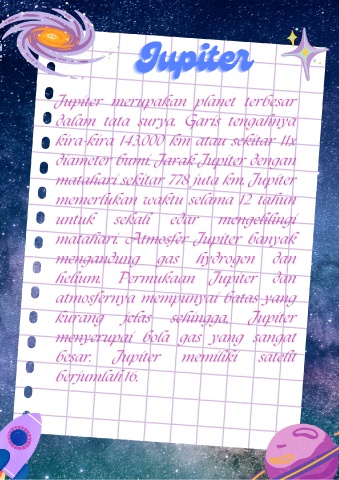 Jupiter
Jupiter merupakan planet terbesar
dalam tata surya. Garis tengahnya
kira-kira 143.000 km atau sekitar 11x
diameter bumi. Jarak Jupiter dengan
matahari sekitar 778 juta km. Jupiter
memerlukan waktu selama 12 tahun
untuk sekali edar mengelilingi
matahari. Atmosfer Jupiter banyak
mengandung gas hydrogen dan
helium. Permukaan Jupiter dan
atmosfernya mempunyai batas yang
kurang jelas sehingga, Jupiter
menyerupai bola gas yang sangat
besar. Jupiter memiliki satelit
berjumlah 16.